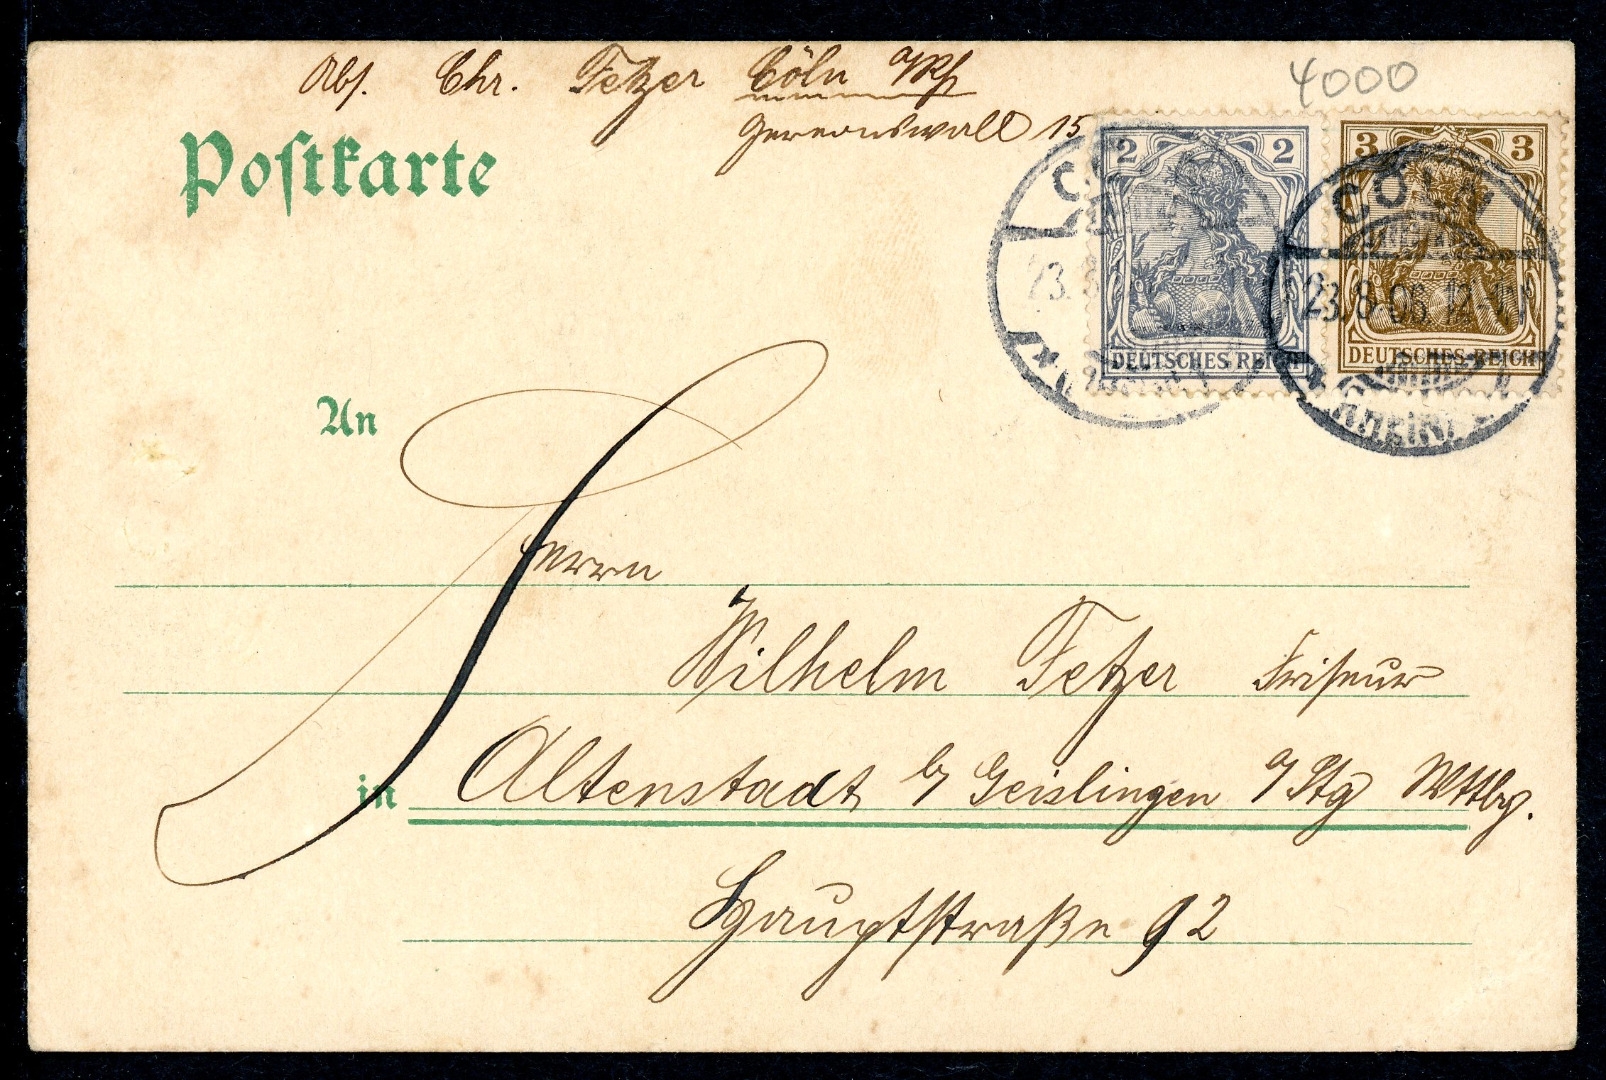 Abs. Chr. Fetzer Cöln a/Rh
Gereonswall 15
4000
Postkarte
2 2
DEUTSCHES REICH
3 3
DEUTSCHES REICH
CÖLN
23.8.06.12-1N
An
Herrn
Wilhelm Fetzer Friseur
in Altenstadt b/ Geislingen a/Stg Wttbg.
Hauptstraße 92